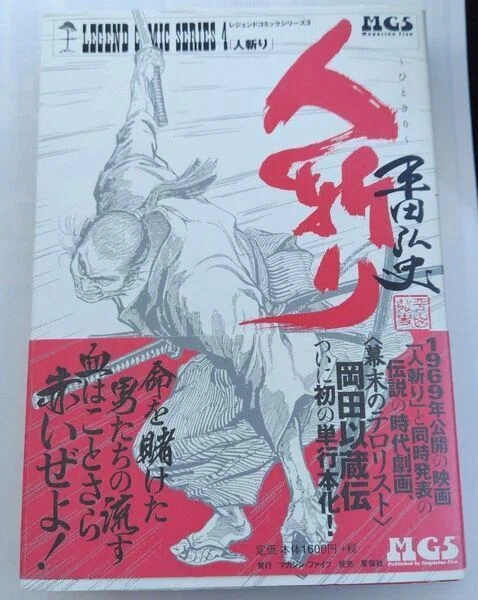 LEGEND COMIC SERIES 4
レジェンドコミックシリーズ3
[人斬り]
MG5
Magazine Five
~ひときり~
人斬り
平田弘史
1969年公開の映画
「人斬り」と同時発表の
伝説の時代劇画
〈幕末のテロリスト〉
岡田以蔵伝
ついに初の単行本化!
命を賭けた
男たちの流す
血はことさら
赤いぜよ!
定価 本体1600円+税
発行 マガジン・ファイブ 発売 星雲社
MG5
Published by Magazine Five